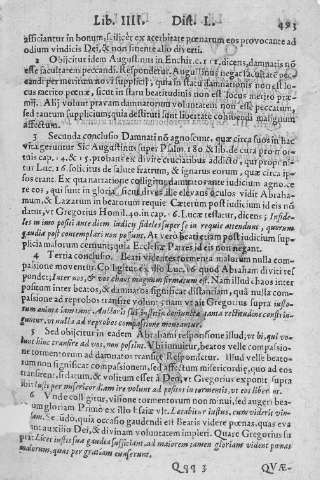 Lib. IIII. Dist. L. 493
afficiantur in bonum, scilicet ex acerbitate pœnarum eos provocante ad
odium vindicis Dei, & non sinente alio diverti.
2 Obijcitur idem Augustinus in Enchir. c. 111. dicens, damnatis non
esse facultatem peccandi. Respondetur, Augustinus negat facultatem peccandi
per meritum novi supplicij, quia in statu damnationis non est locus
merito pœnæ, sicut in statu beatitudinis non est locus merito præmij.
Alij volunt pravam damnatorum voluntatem non esse peccatum,
sed tantum supplicium; quia destituti sint libertate cohibendi malignum
affectum.
3 Secunda conclusio Damnati non agnoscunt, quæ circa suos in hac
vita geruntur Sic Augustinus super Psalm. 180 & lib. de cura pro mortuis
cap. 14. & 15. probans ex divite cruciatibus addicto, qui
Luc. 16. solicitus de salute fratrum, & ignarus eorum, quæ circa ipsos
erant. Ex qua narratione colligimus damnatos ante judicium agnoscere
eos, qui sunt in gloria, sicut dives ille elevans oculos vidit Abrahamum,
& Lazarum in beatorum requie Cæterum post judicium id eis non
datur, ut Gregorius Homil. 40. in cap. 16. Lucæ testatur, dicens; Infideles
in imo positi ante diem judicij fideles super se in requie attendunt, quorum
gaudia post contemplari non possunt. At vero beati etiam post judicium supplicia
malorum cernunt; quia Ecclesiæ Patres id eis non negant.
4 Tertia conclusio. Beati videntes tormenta malorum nulla compassione
moventur. Colligitur ex illo Luc. 16 quod Abraham diviti respondet;
Inter nos, & vos chaos magnum firmatum est. Nam illud chaos inter
positum inter beatos, & damnatos significat distantiam, quâ nulla compassione
ad reprobos transire volunt; etiam ut ait Gregorius supra justorum
animæ
misericordiam
guntur, ut nulla ad reprobos compassione moveantur.
5 Sed objicitur in eadem Abrahami responsione illud; ut hi, qui volunt
hinc transire ad vos, non possint. Vbi innuitur, beatos velle compassione
tormentorum ad damnatos transire Respondetur. Illud velle beatorum
non significat compassionem, sed affectum misericordiæ, quo ad eos
transirent, si datum, & volitum esset à Deo, ut Gregorius exponit supra
ibi justi per misericordiam ire volunt ad positos in tormentis, ut eos liberent.
6 Vnde colligitur, visionem tormentorum non minui, sed augeri beatorum
gloriam Primo ex illo Psalm. Lætabitur justus, cum viderit vindictam.
Secundo, quia occasio gaudendi est Beatis videre pœnas, quas evaserant
auxilio Dei, & divinam voluntatem impleri. Quare Gregorius supra:
Licet justis sua gaudia sufficiant, ad majorem tamen gloriam vident pœnas
malorum, quas per gratiam evaserunt.
Qqq 3 QVÆ-